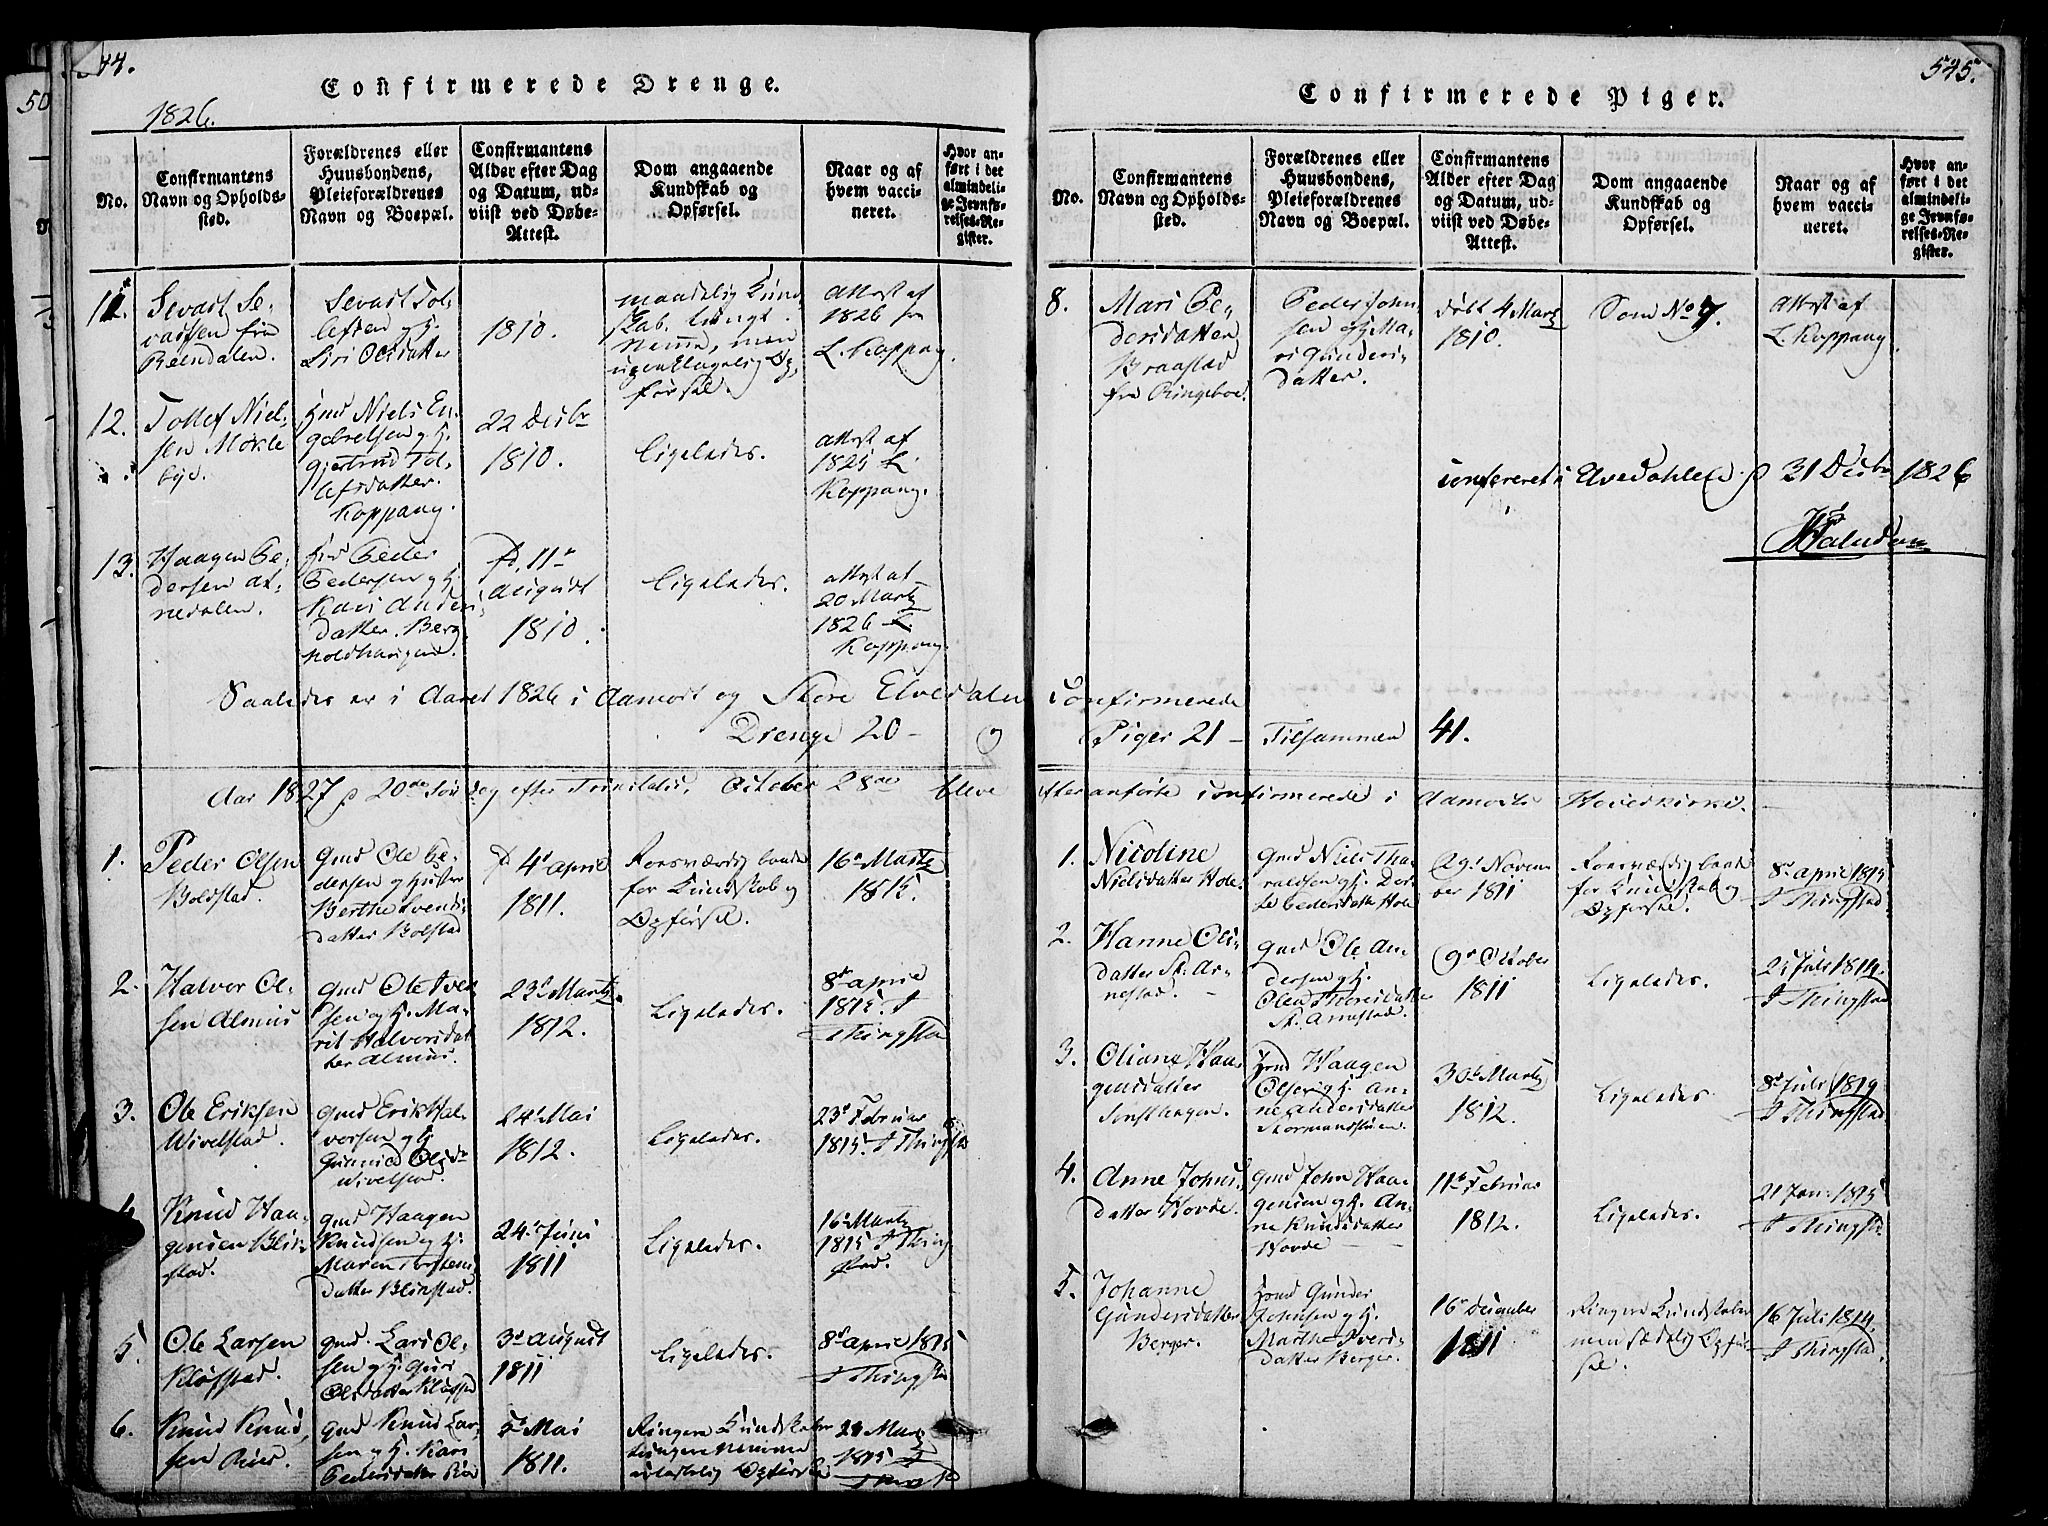 44.
Confirmerede Drenge.
1826.
No.
Confirmantens
Navn og Opholds-
sted.
Forældrenes eller
Huusbondens,
Pleieforældrenes
Navn og Boepæl.
Confirmantens
Alder efter Dag
og Datum, ud-
viist ved Døbe-
Attest.
Dom angaaende
Kundskab og
Opførsel.
Naar og af
hvem vacci-
neret.
Hvor an-
ført i det
almindeli-
ge Jevnfø-
relses-Re-
gister.
11.
Sevast Se-
vastsen fra
Reendalen.
Sevast Tol-
lefsen og H.
Siri Olsdatter
1810.
maadelig Kund-
skab, tungt
Nemme, men
upaaklagelig Op-
førsel.
Attest af
1826 fra
L. Koppang.
12.
Tollef Niel-
sen Mokle
bye.
Gmd Niels En-
gebretsen og H.
Gjertrud Tol-
lefsdatter.
Koppang.
22 Decbr
1810.
Ligeledes.
Attest af
1825 L.
Koppang.
13.
Haagen Pe-
dersen At-
nedalen.
Peder
Pedersen og H.
Kari Anders
datter. Berg
holdhaugen.
D. 11te
August
1810.
Ligeledes.
Attest af
20 Marts
1826 L.
Koppang.
Saaledes er i Aaret 1826 i Aamodt og Store Elvedalen
Drenge 20 - og
Aar 1827 p 20de Søndag efter Trinitatis, October 28de bleve
1.
Peder Olsen
Bolstad.
Gmd Ole Pe-
dersen og Hustru
Berthe Svends
datter Bolstad
D 4de April
1811.
Roesværdig baade
for Kundskab og
Opførsel.
16de Martz
1815.
2.
Halvor Ol-
sen Almus
Gmd Ole Iver
sen og H. Ma-
rit Halvorsdat
ter Almus.
23de Martz
1812.
Ligeledes.
8de April
1815. J
Thingstad
3.
Ole Eriksen
Wivelstad.
Gmd Erik Hal-
vorsen og H.
Gunnild Olsdr
Wivelstad.
24de Mai
1812.
Ligeledes.
23de Februar
1815. J Thingstad
4.
Knud Haa-
gensen Blik-
stad.
Gmd Haagen
Knudsen og H.
Maren Torstens
datter Blikstad.
24de Juni
1811
Ligeledes.
16de Martz
1815 J Thing
stad.
5.
Ole Larsen
Kløfstad.
Gmd. Lars Ol-
sen og H. Guri
Olsdatter Kløfsd
3de August
1811
Ligeledes.
8de April 1815
J Thingstad
6.
Knud Knud-
sen Riis.
Gmd Knud Lar-
sen og H. Kari
Pedersdatter Riis
5te Mai
1811.
Ringere Kundskaber
tungere Nemme
Opførsel
21 Martz
1815 J
Thingstd
545.
Confirmerede Piger.
No.
Confirmantens
Navn og Opholds-
sted.
Forældrenes eller
Huusbondens,
Pleieforældrenes
Navn og Boepæl.
Confirmantens
Alder efter Dag
og Datum, ud-
viist ved Døbe-
Attest.
Dom angaaende
Kundskab og
Opførsel.
Naar og af
hvem vacci-
neret.
Hvor an-
ført i det
almindeli-
ge Jevnfø-
relses-Re-
gister.
8.
Mari Pe-
dersdatter
Braastad
fra Ringeboe.
Peder John-
sen og H. Ma-
ri Gunders
datter.
døbt 4 Martz
1810.
Som No 7.
Attest af
L. Koppang
confereret i Elvedahlen p 31 Decbr 1826
Confirmerede
Piger 21 - Tilsammen 41.
efteranførte confirmerede i Aamodts Hovedkirke. -
1.
Nicoline
Nielsdatter Hole.
Gmd Niels Tha-
raldsen og H. Dor-
te Pedersdatter Hole
29de Novem
ber 1811
Roesværdig baade
for Kundskab og
Opførsel.
8de April 1815
J Thingstad
2.
Hanne Ols-
datter St. Ar-
nestad. -
Gmd Ole An-
dersen og H.
Olea Thoresdatter
St. Arnestad.
9de October
1811
Ligeledes.
25 Juli 1814.
J Thingstad
3.
Oliane Haa-
gensdatter
Haagen
Olsen og H. An-
ne Andersdatter
30te Martz
1812.
Ligeledes.
8de Juli 1819
J Thingstad
4.
Anne Johns-
datter Hovde.
Gmd John Haa-
gensen og H. An-
ne Knudsdatter
Hovde -
11te Februar
1812.
Ligeledes.
21 Jan: 1815
J Thingstad.
5.
Johanne
Gundersdatter
Berger.
Gunder
Johnsen og H.
Marthe Ivers-
datter Berger.
16de December
1811
Ringere Kundskaber
men sædelig Opfør-
sel.
16 Juli 1814.
J Thingstad.